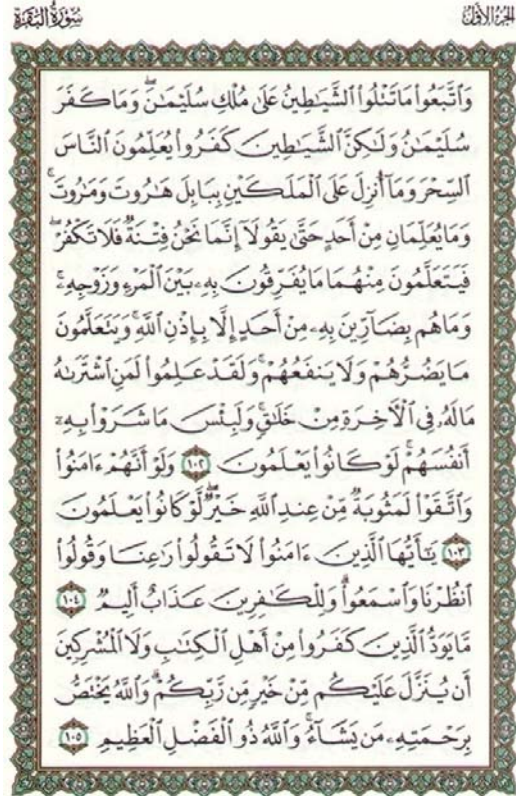 الجزء الأول
سورة البقرة
وَٱتَّبَعُوا۟ مَا تَتْلُوا۟ ٱلشَّيَـٰطِينُ عَلَىٰ مُلْكِ سُلَيْمَـٰنَ ۖ وَمَا كَفَرَ
سُلَيْمَـٰنُ وَلَـٰكِنَّ ٱلشَّيَـٰطِينَ كَفَرُوا۟ يُعَلِّمُونَ ٱلنَّاسَ
ٱلسِّحْرَ وَمَآ أُنزِلَ عَلَى ٱلْمَلَكَيْنِ بِبَابِلَ هَـٰرُوتَ وَمَـٰرُوتَ ۚ
وَمَا يُعَلِّمَانِ مِنْ أَحَدٍ حَتَّىٰ يَقُولَآ إِنَّمَا نَحْنُ فِتْنَةٌ فَلَا تَكْفُرْ ۖ
فَيَتَعَلَّمُونَ مِنْهُمَا مَا يُفَرِّقُونَ بِهِۦ بَيْنَ ٱلْمَرْءِ وَزَوْجِهِۦ ۚ
وَمَا هُم بِضَآرِّينَ بِهِۦ مِنْ أَحَدٍ إِلَّا بِإِذْنِ ٱللَّهِ ۚ وَيَتَعَلَّمُونَ
مَا يَضُرُّهُمْ وَلَا يَنفَعُهُمْ ۚ وَلَقَدْ عَلِمُوا۟ لَمَنِ ٱشْتَرَىٰهُ
مَا لَهُۥ فِى ٱلْـَٔاخِرَةِ مِنْ خَلَـٰقٍ ۚ وَلَبِئْسَ مَا شَرَوْا۟ بِهِۦٓ
أَنفُسَهُمْ ۚ لَوْ كَانُوا۟ يَعْلَمُونَ ١٠٢ وَلَوْ أَنَّهُمْ ءَامَنُوا۟
وَٱتَّقَوْا۟ لَمَثُوبَةٌ مِّنْ عِندِ ٱللَّهِ خَيْرٌ ۖ لَّوْ كَانُوا۟ يَعْلَمُونَ
١٠٣ يَـٰٓأَيُّهَا ٱلَّذِينَ ءَامَنُوا۟ لَا تَقُولُوا۟ رَٰعِنَا وَقُولُوا۟
ٱنظُرْنَا وَٱسْمَعُوا۟ ۗ وَلِلْكَـٰفِرِينَ عَذَابٌ أَلِيمٌ ١٠٤
مَّا يَوَدُّ ٱلَّذِينَ كَفَرُوا۟ مِنْ أَهْلِ ٱلْكِتَـٰبِ وَلَا ٱلْمُشْرِكِينَ
أَن يُنَزَّلَ عَلَيْكُم مِّنْ خَيْرٍ مِّن رَّبِّكُمْ ۗ وَٱللَّهُ يَخْتَصُّ
بِرَحْمَتِهِۦ مَن يَشَآءُ ۚ وَٱللَّهُ ذُو ٱلْفَضْلِ ٱلْعَظِيمِ ١٠٥